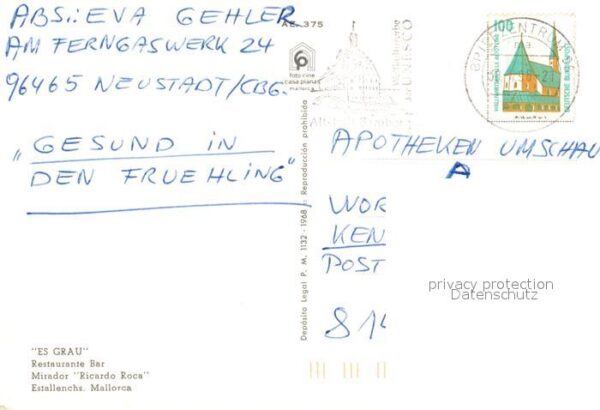 ABS.: EVA GEHLER
AM FERNGASWERK 24
96465 NEUSTADT/CBG.
„GESUND IN
DEN FRUEHLING"
AE. 375
foto cine
casa planas
mallorca
Depósito Legal P. M. 1132 - 1968 :: Reproducción prohibida
UNESCO
BRIEFZENTRUM
100
WALLFAHRTSKAPELLE ALTÖTTING
DEUTSCHE BUNDESPOST
APOTHEKEN UMSCHAU
A
WOR
KEN
POST
privacy protection
Datenschutz
"ES GRAU"
Restaurante Bar
Mirador "Ricardo Roca"
Estallenchs. Mallorca